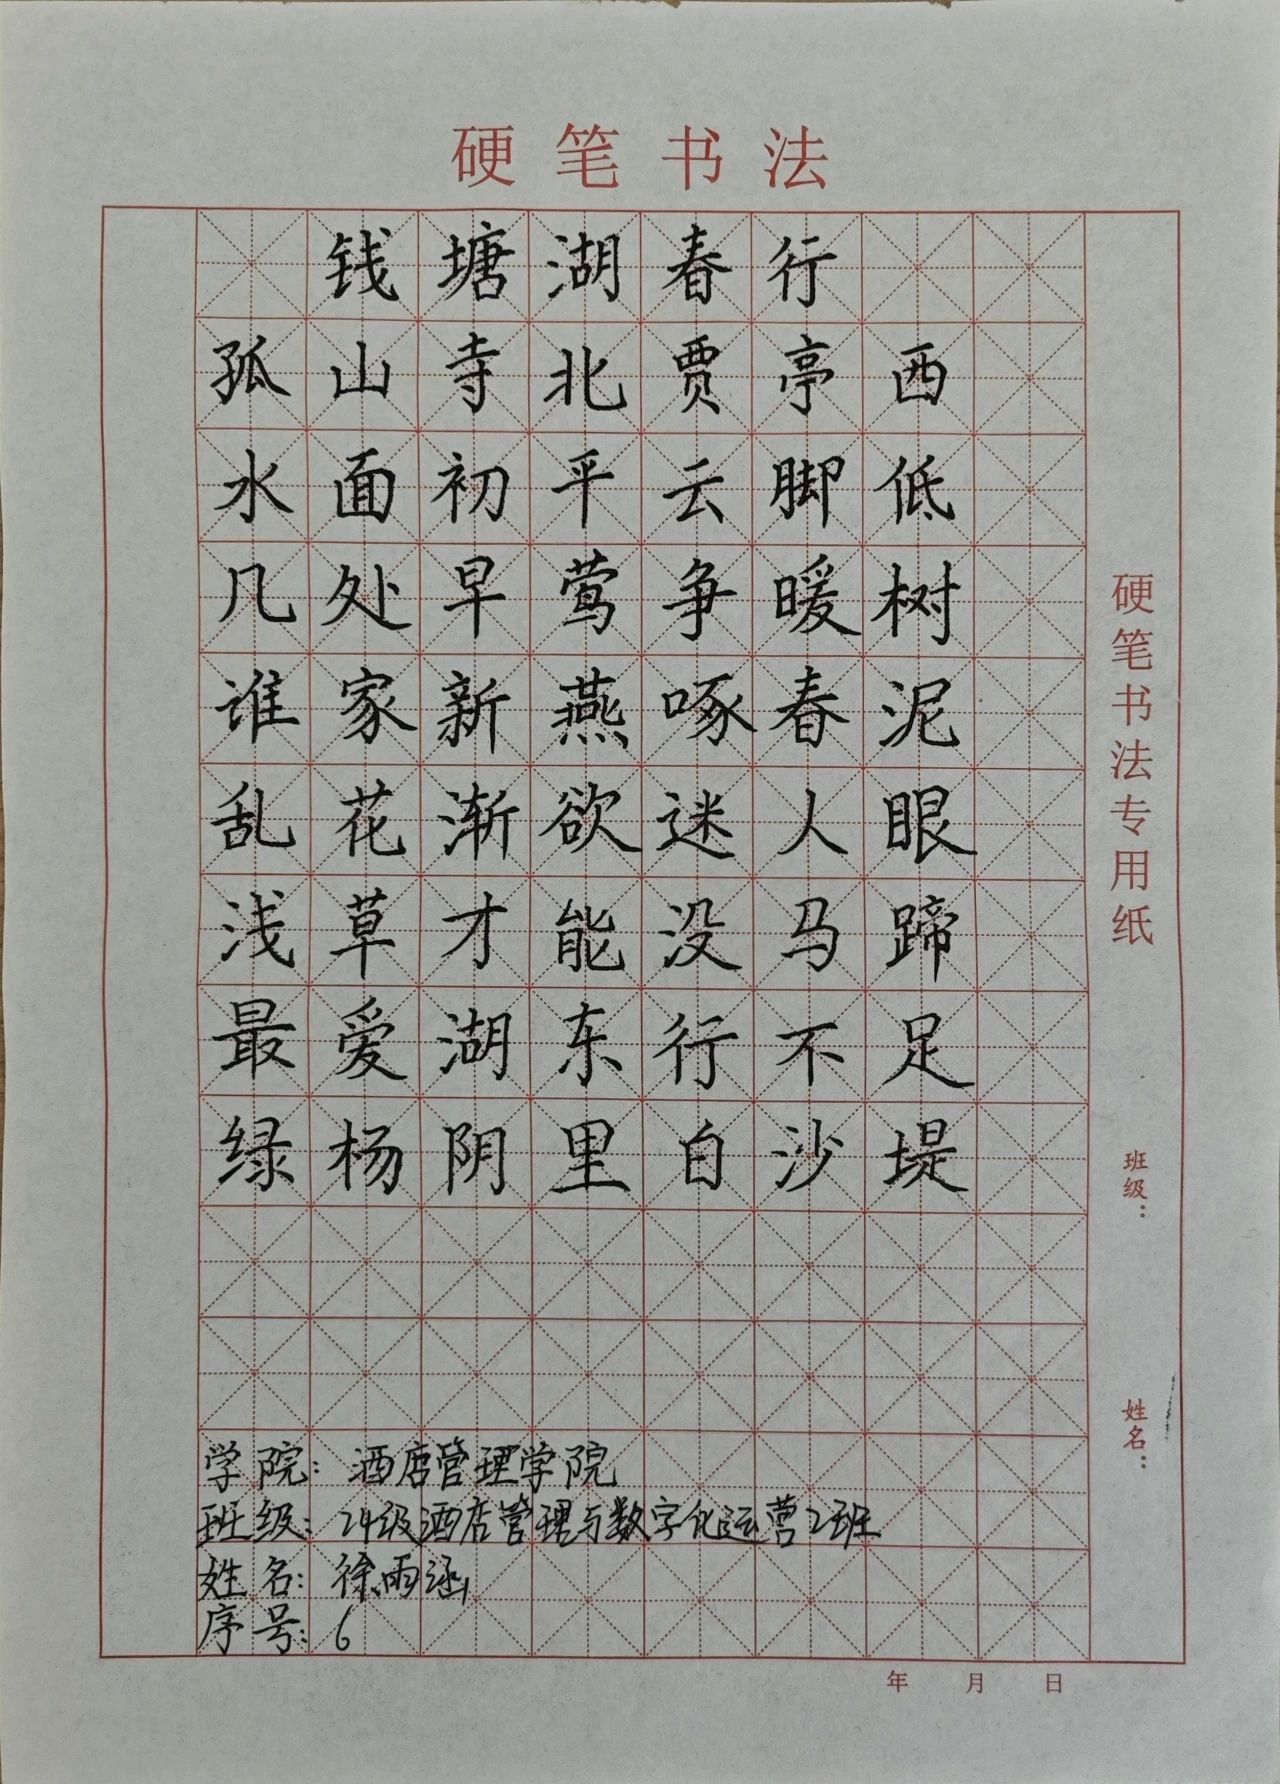 硬笔书法
钱塘湖春行
孤山寺北贾亭西
水面初平云脚低
几处早莺争暖树
谁家新燕啄春泥
乱花渐欲迷人眼
浅草才能没马蹄
最爱湖东行不足
绿杨阴里白沙堤
学院：酒店管理学院
班级：24级酒店管理与数字化运营2班
姓名：徐雨涵
序号：6
硬笔书法专用纸
班级：
姓名：
年 月 日